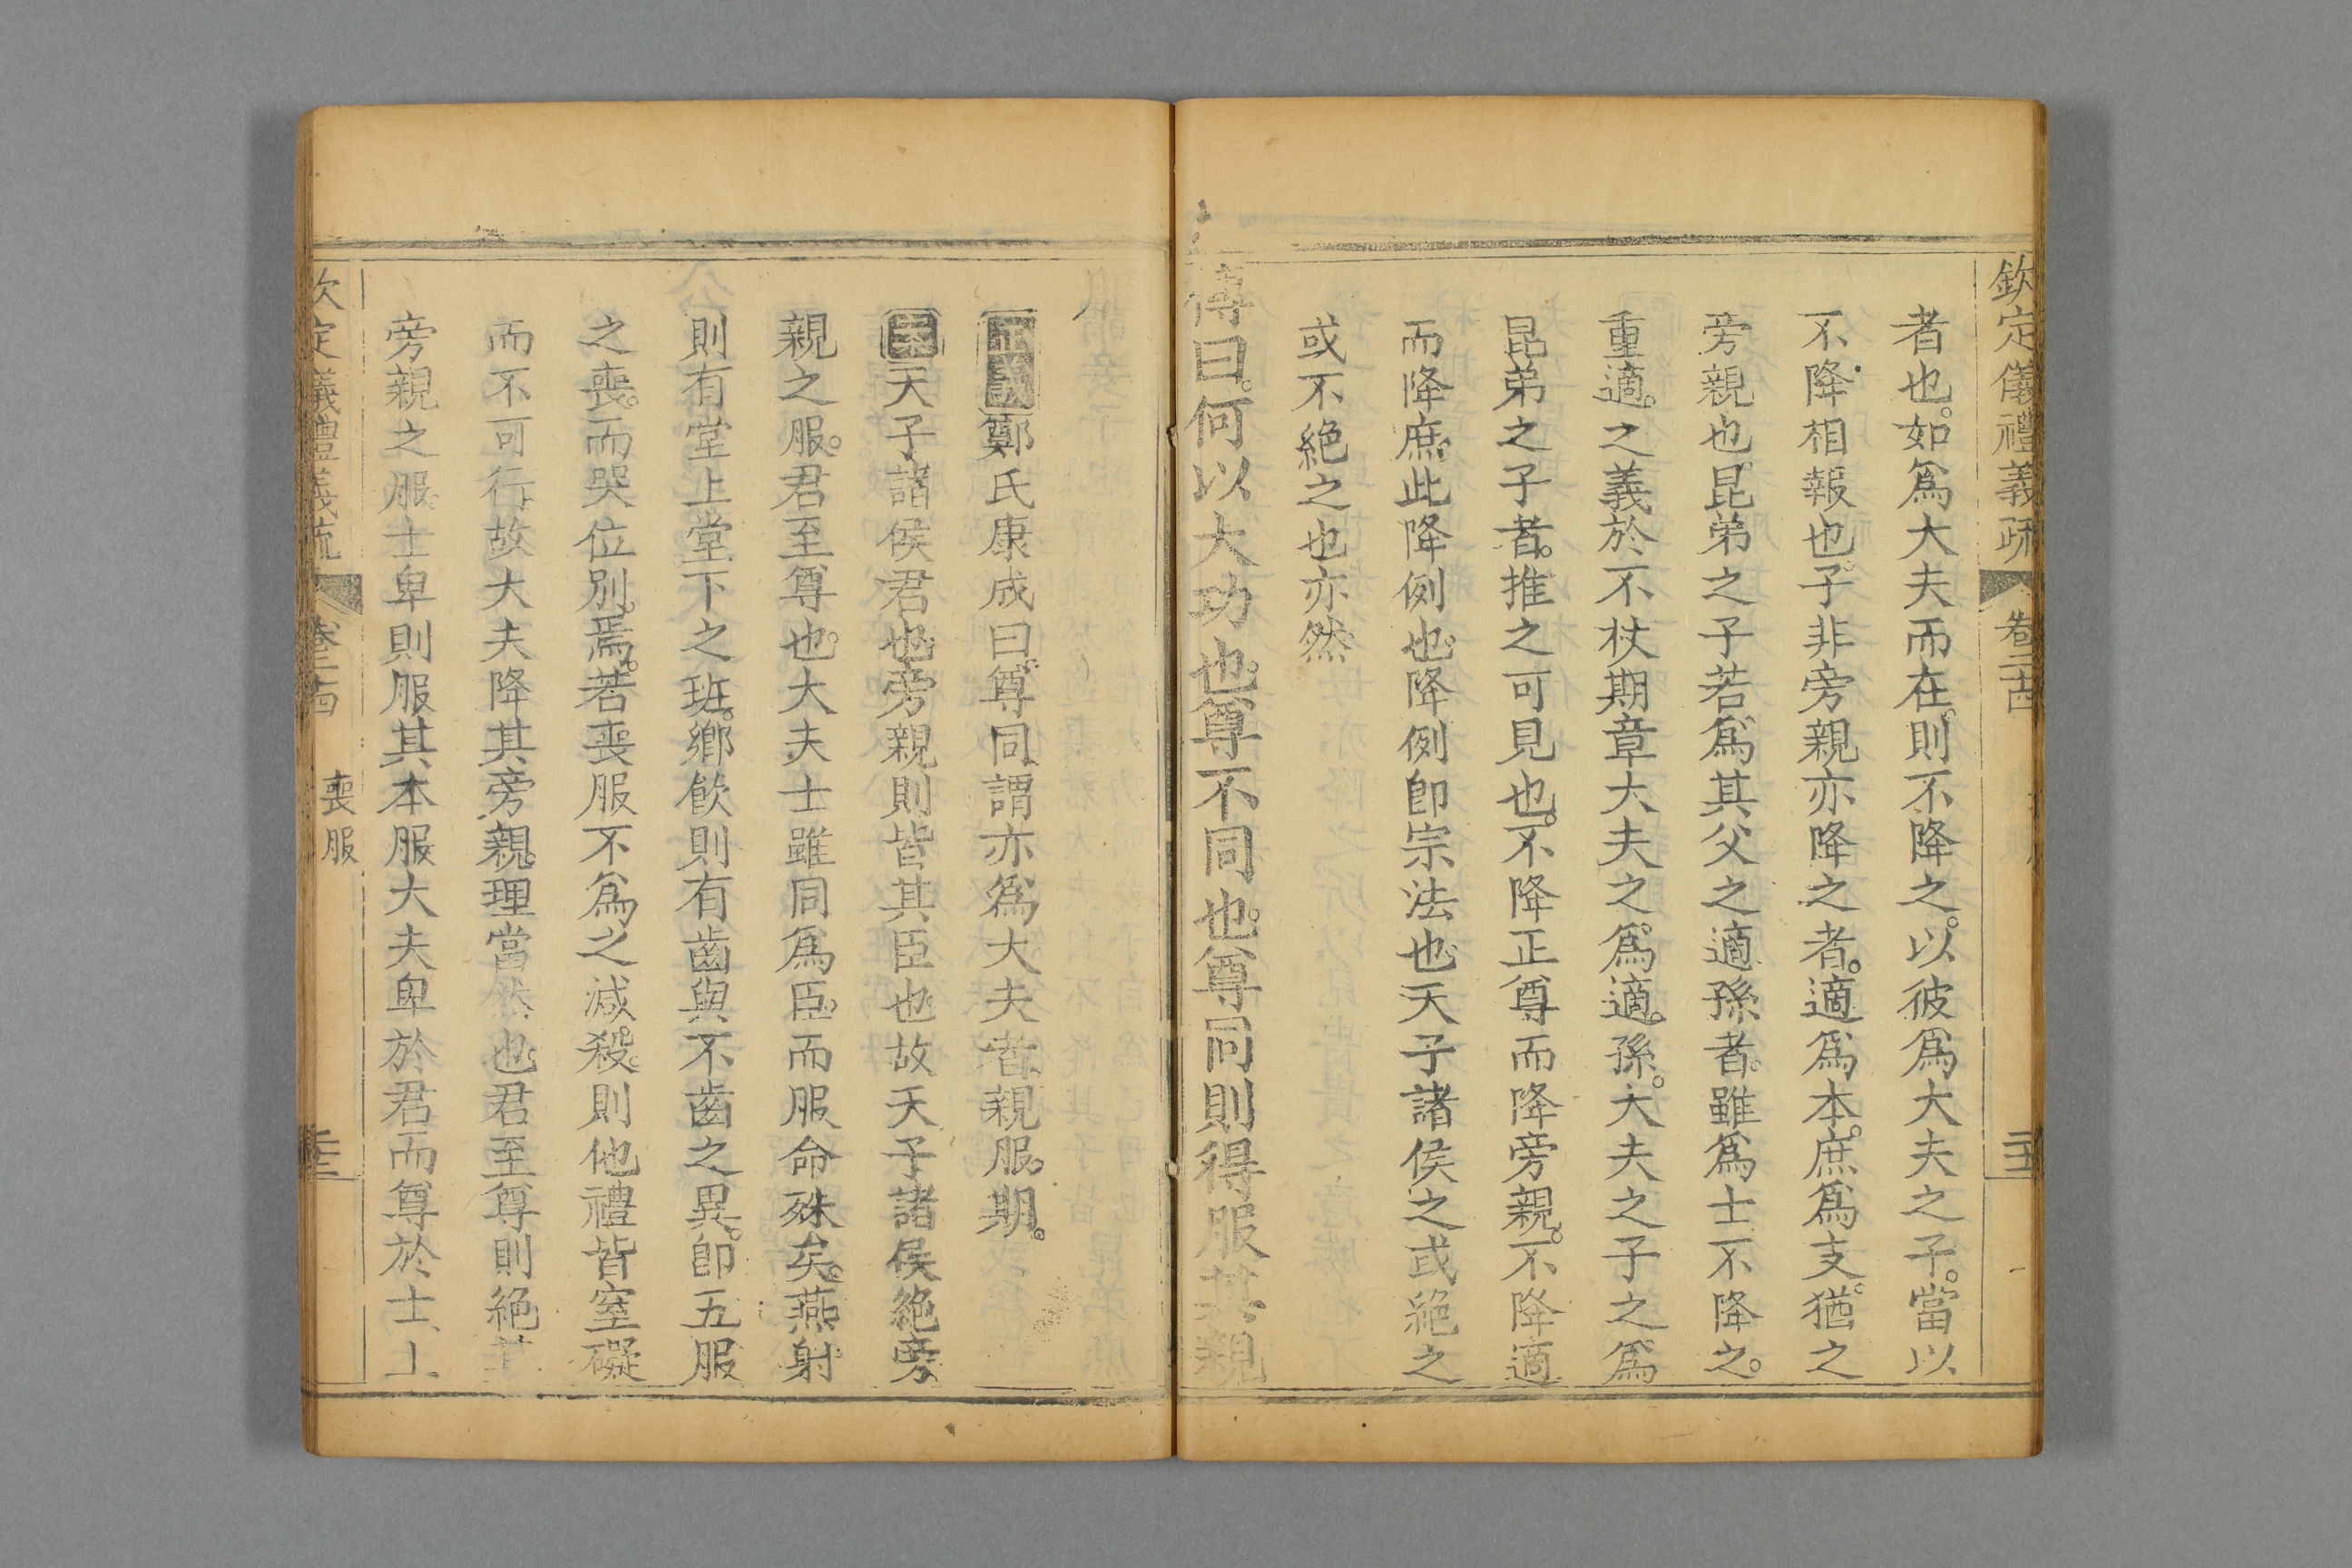 欽定儀禮義疏 卷二十四
者也如爲大夫而在則不降之以彼爲大夫之子當以
不降相報也子非旁親亦降之者適爲本庶爲支猶之
旁親也昆弟之子若爲其父之適孫者雖爲士不降之
重適之義於不杖期章大夫之爲適孫大夫之子之爲
昆弟之子者推之可見也不降正尊而降旁親不降適
而降庶此降例也降例卽宗法也天子諸侯之或絶之
或不絶之也亦然
傳曰何以大功也尊不同也尊同則得服其親
正義鄭氏康成曰尊同謂亦爲大夫者親服期
天子諸侯君也旁親則皆其臣也故天子諸侯絶旁
親之服君至尊也大夫士雖同爲臣而服命殊矣燕射
則有堂上堂下之班鄉飲則有齒與不齒之異卽五服
之喪而哭位別焉若喪服不爲之減殺則他禮皆窒礙
而不可行故大夫降其旁親理當然也君至尊則絶其
旁親之服士卑則服其本服大夫卑於君而尊於士上
欽定儀禮義疏 卷二十四 喪服